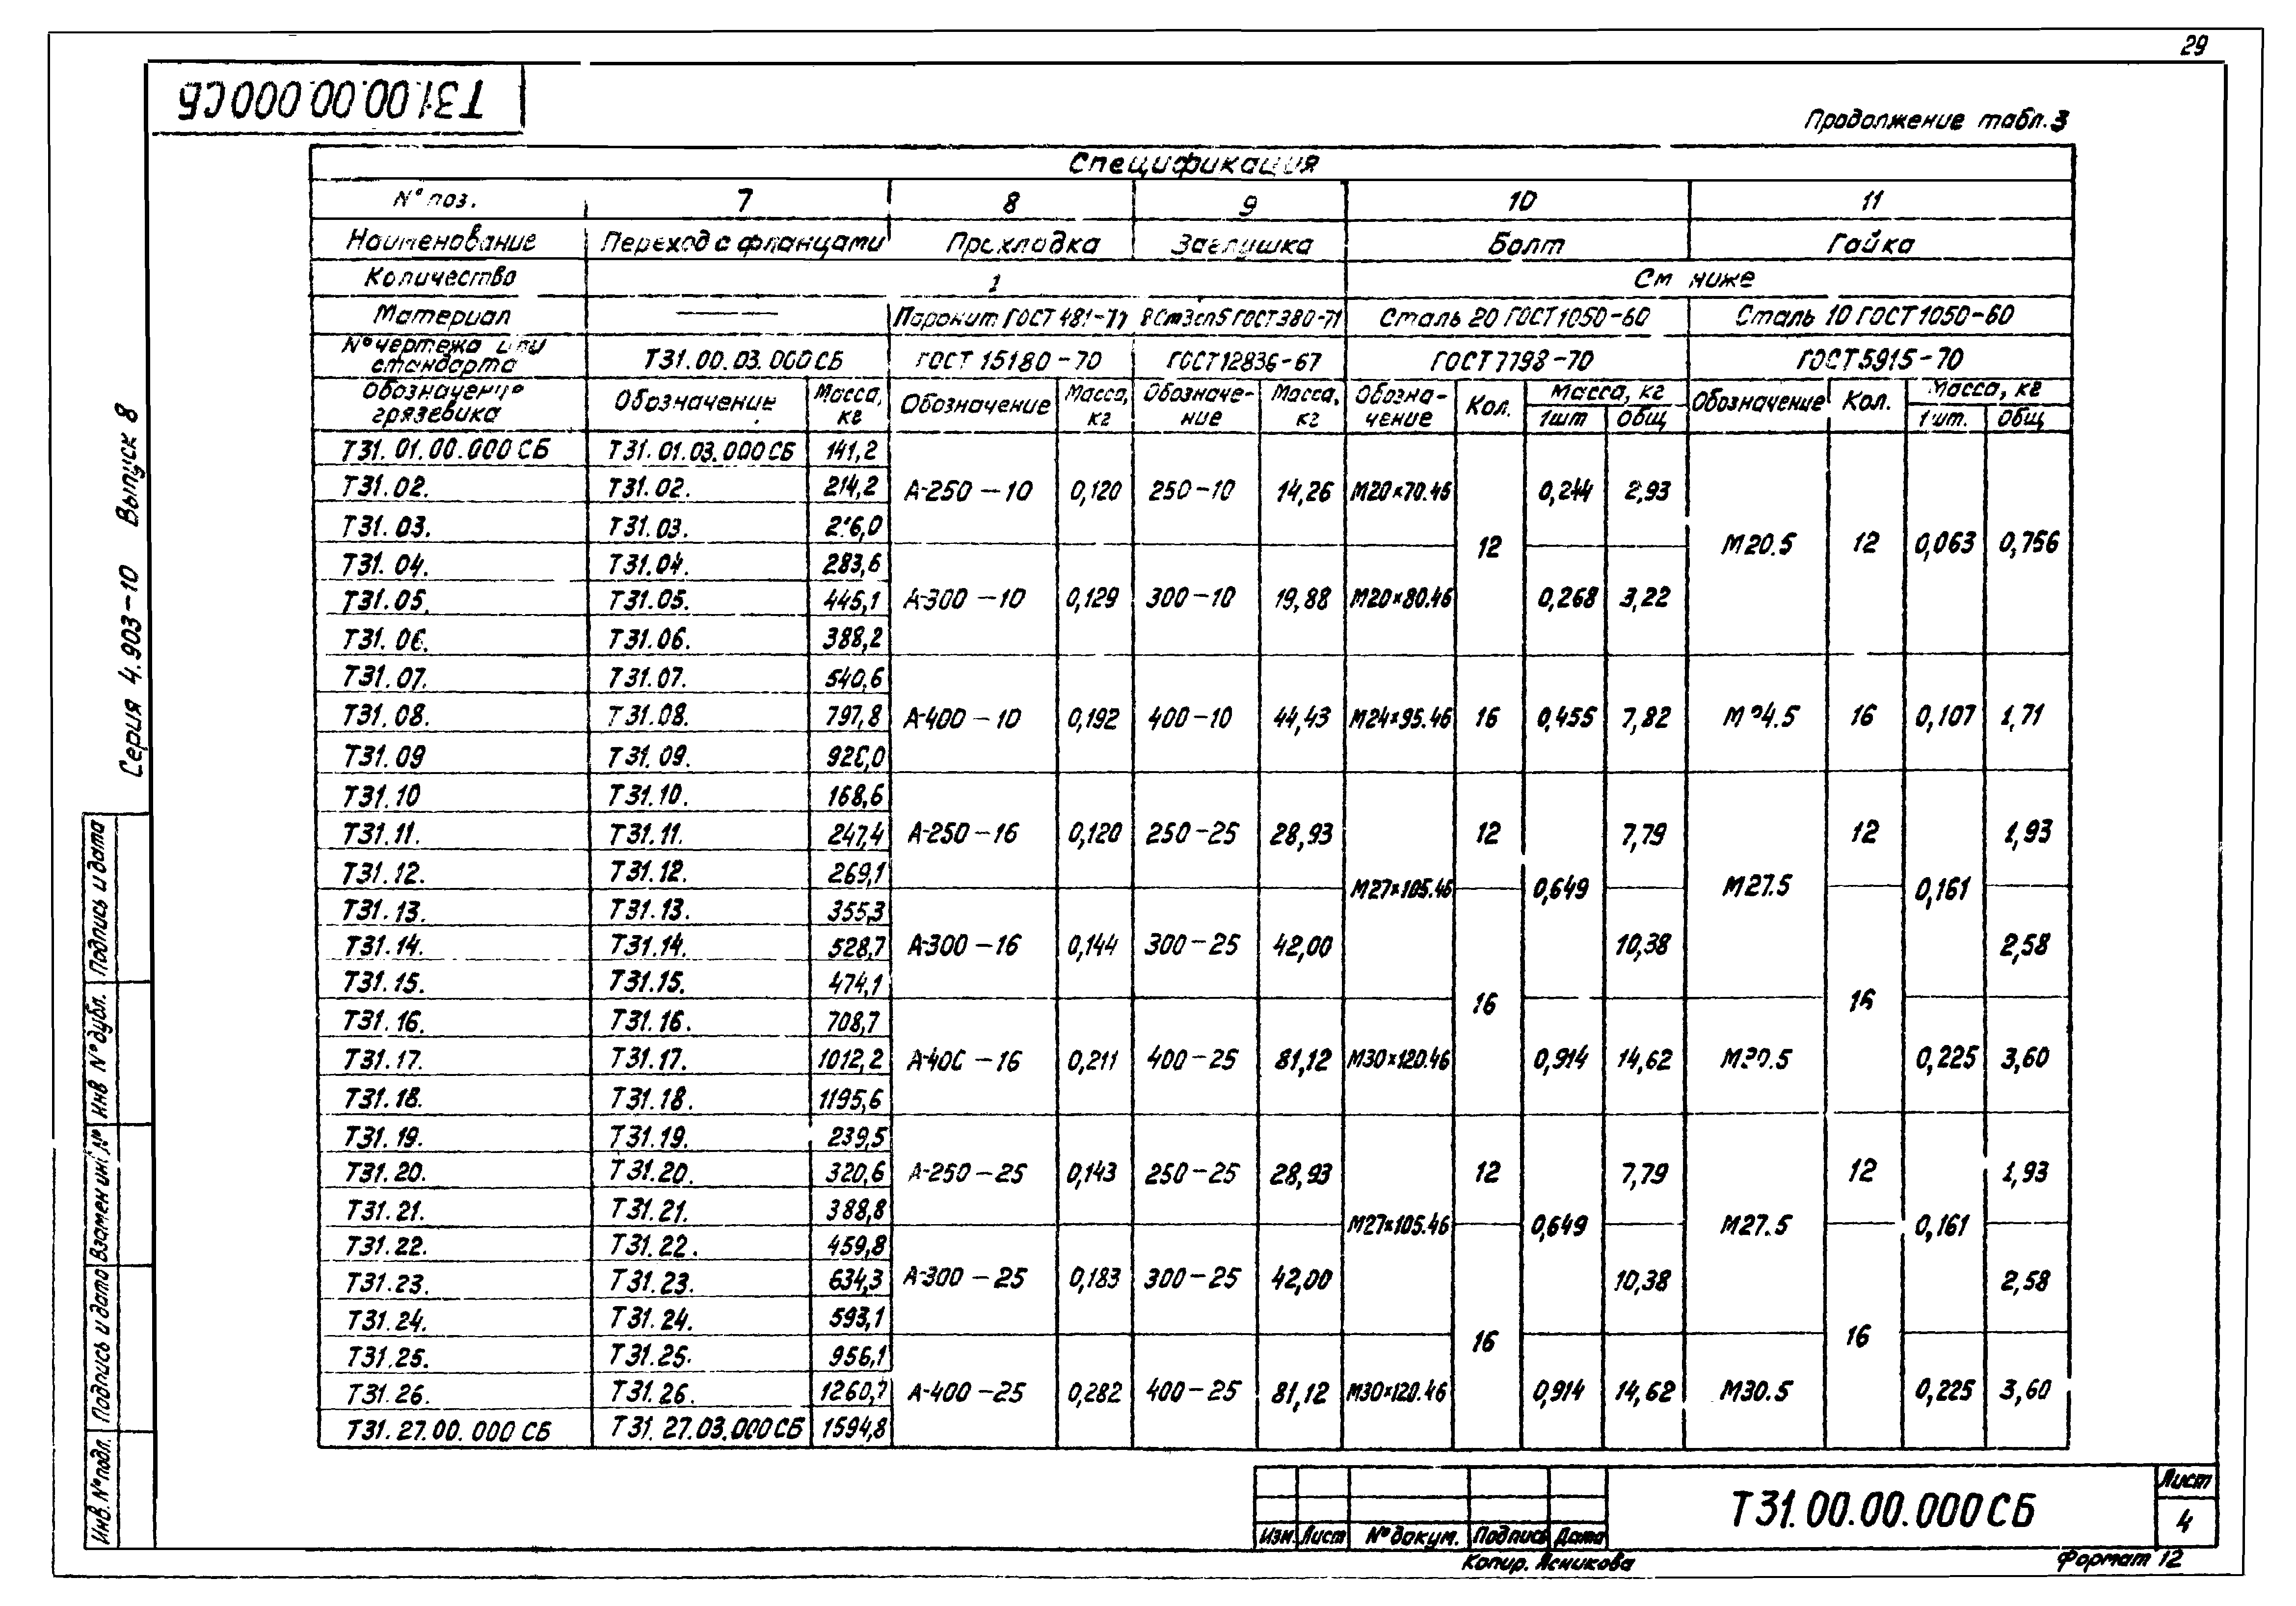 29
Т31.00.00.000СБ
Продолжение табл.3
Спецификация
N° поз. 7 8 9 10 11
Наименование Переход с фланцами Прокладка Заглушка Болт Гайка
Количество 1 См ниже
Материал Паронит ГОСТ 481-71 ВСт3сп5 ГОСТ380-71 Сталь 20 ГОСТ1050-60 Сталь 10 ГОСТ1050-60
N° чертежа или стандарта Т31.00.03.000СБ ГОСТ 15180-70 ГОСТ12836-67 ГОСТ7798-70 ГОСТ5915-70
Обозначение грязевика Обозначение Масса, кг Обозначение Масса, кг Обозначение Масса, кг Обозначение Кол. Масса, кг 1шт Общ Обозначение Кол. Масса, кг 1шт. Общ
Т31.01.00.000СБ Т31.01.03.000СБ 141,2
Т31.02. Т31.02. 214,2 А-250-10 0,120 250-10 14,26 М20×70.46 0,244 2,93
Т31.03. Т31.03.
12 М20.5 12 0,063 0,756
Т31.04. Т31.04. 283,6
Т31.05. Т31.05. 445,1 А-300-10 0,129 300-10 19,88 М20×80.46 0,268 3,22
Т31.06. Т31.06. 388,2
Т31.07. Т31.07. 540,6
Т31.08. Т31.08. 797,8 А-400-10 0,192 400-10 44,43 М24×95.46 16 0,455 7,82 М24.5 16 0,107 1,71
Т31.09 Т31.09.
Т31.10 Т31.10. 168,6
Т31.11. Т31.11. 247,4 А-250-16 0,120 250-25 28,93 12 7,79 12 1,93
Т31.12. Т31.12. 269,1
М27×105.46 0,649 М27.5 0,161
Т31.13. Т31.13. 355,3
Т31.14. Т31.14. 528,7 А-300-16 0,144 300-25 42,00 10,38 2,58
Т31.15. Т31.15. 474,1
16 16
Т31.16. Т31.16. 708,7
Т31.17. Т31.17. 1012,2 А-400-16 0,211 400-25 81,12 М30×120.46 0,914 14,62 М30.5 0,225 3,60
Т31.18. Т31.18. 1195,6
Т31.19. Т31.19. 239,5
Т31.20. Т31.20. 320,6 А-250-25 0,143 250-25 28,93 12 7,79 12 1,93
Т31.21. Т31.21. 388,8
М27×105.46 0,649 М27.5 0,161
Т31.22. Т31.22. 459,8
Т31.23. Т31.23. 634,3 А-300-25 0,183 300-25 42,00 10,38 2,58
Т31.24. Т31.24. 593,1
16 16
Т31.25. Т31.25. 956,1
Т31.26. Т31.26. А-400-25 0,282 400-25 81,12 М30×120.46 0,914 14,62 М30.5 0,225 3,60
Т31.27.00.000СБ Т31.27.03.000СБ 1594,8
Серия 4.903-10 Выпуск 8
Инв. N° подл. Подпись и дата Взамен инв N° Инв N° дубл. Подпись и дата
Изм. Лист N° докум. Подпись Дата
Т31.00.00.000СБ
Лист
4
Копир. Ясникова
Формат 12